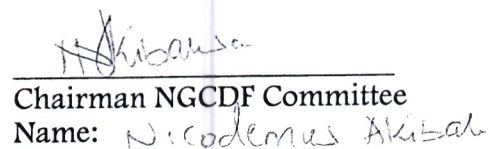 Chairman NGCDF Committee
Name: Nicodemus Akibah